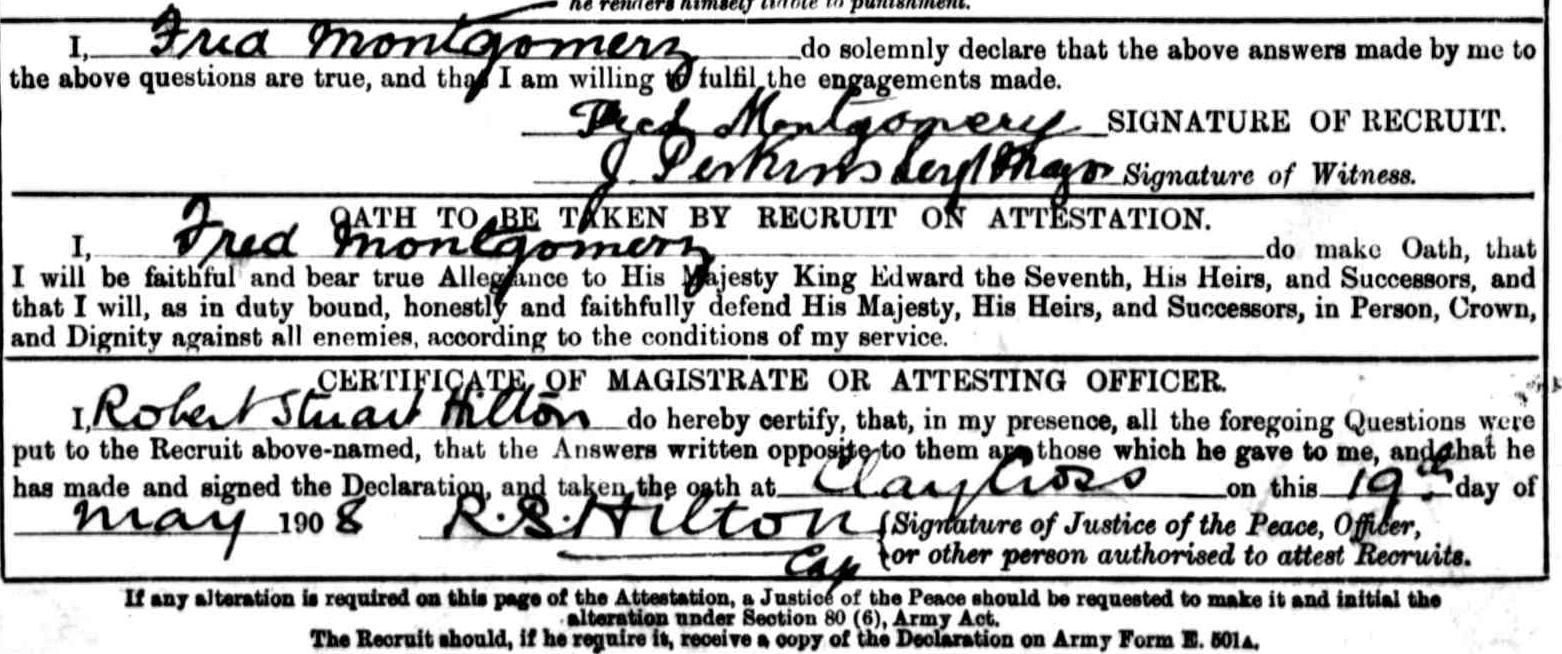 he renders himself liable to punishment.
I, Fred Montgomery do solemnly declare that the above answers made by me to
the above questions are true, and that I am willing to fulfil the engagements made.
Fred Montgomery SIGNATURE OF RECRUIT.
J. Perkins Sergt Major Signature of Witness.
OATH TO BE TAKEN BY RECRUIT ON ATTESTATION.
I, Fred Montgomery do make Oath, that
I will be faithful and bear true Allegiance to His Majesty King Edward the Seventh, His Heirs, and Successors, and
that I will, as in duty bound, honestly and faithfully defend His Majesty, His Heirs, and Successors, in Person, Crown,
and Dignity against all enemies, according to the conditions of my service.
CERTIFICATE OF MAGISTRATE OR ATTESTING OFFICER.
I, Robert Stuart Hilton do hereby certify, that, in my presence, all the foregoing Questions were
put to the Recruit above-named, that the Answers written opposite to them are those which he gave to me, and that he
has made and signed the Declaration, and taken the oath at Clay Cross on this 19th day of
May 1908 R.S. Hilton {Signature of Justice of the Peace, Officer,
Cap {or other person authorised to attest Recruits.
If any alteration is required on this page of the Attestation, a Justice of the Peace should be requested to make it and initial the
alteration under Section 80 (6), Army Act.
The Recruit should, if he require it, receive a copy of the Declaration on Army Form E. 501A.